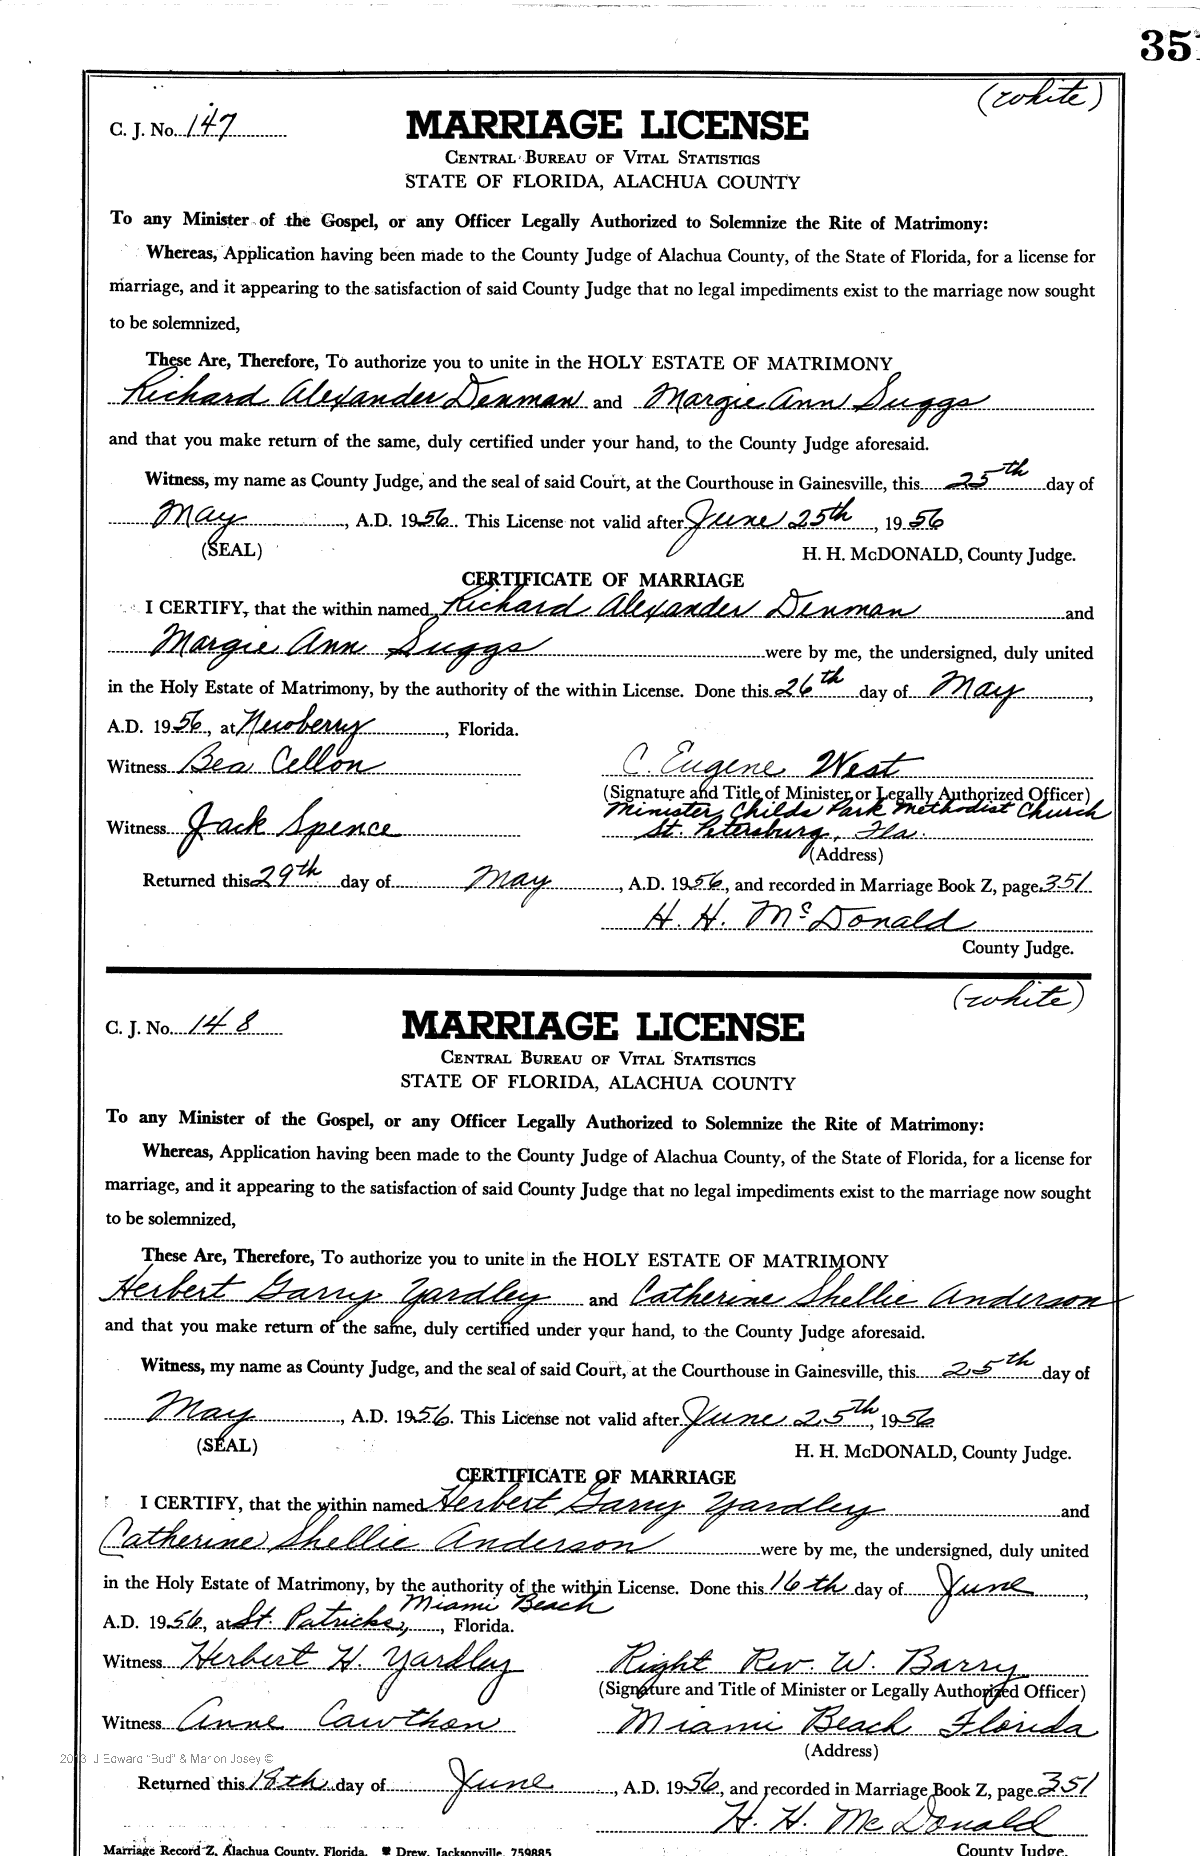 351
(white)
C. J. No. 147
MARRIAGE LICENSE
CENTRAL BUREAU OF VITAL STATISTICS
STATE OF FLORIDA, ALACHUA COUNTY
To any Minister of the Gospel, or any Officer Legally Authorized to Solemnize the Rite of Matrimony:
Whereas, Application having been made to the County Judge of Alachua County, of the State of Florida, for a license for
marriage, and it appearing to the satisfaction of said County Judge that no legal impediments exist to the marriage now sought
to be solemnized,
These Are, Therefore, To authorize you to unite in the HOLY ESTATE OF MATRIMONY
Richard Alexander Denman and Margie Ann Suggs
and that you make return of the same, duly certified under your hand, to the County Judge aforesaid.
Witness, my name as County Judge, and the seal of said Court, at the Courthouse in Gainesville, this 25th day of
May, A.D. 1956. This License not valid after June 25th, 1956
(SEAL) H. H. McDONALD, County Judge.
CERTIFICATE OF MARRIAGE
I CERTIFY, that the within named Richard Alexander Denman and
Margie Ann Suggs were by me, the undersigned, duly united
in the Holy Estate of Matrimony, by the authority of the within License. Done this 26th day of May,
A.D. 1956, at Newberry, Florida.
Witness Bea Cellon C. Eugene West
(Signature and Title of Minister or Legally Authorized Officer)
Minister, Childs Park Methodist Church
Witness Jack Spence St. Petersburg, Fla.
(Address)
Returned this 29th day of May, A.D. 1956, and recorded in Marriage Book Z, page 351
H. H. McDonald
County Judge.
(white)
C. J. No. 148
MARRIAGE LICENSE
CENTRAL BUREAU OF VITAL STATISTICS
STATE OF FLORIDA, ALACHUA COUNTY
To any Minister of the Gospel, or any Officer Legally Authorized to Solemnize the Rite of Matrimony:
Whereas, Application having been made to the County Judge of Alachua County, of the State of Florida, for a license for
marriage, and it appearing to the satisfaction of said County Judge that no legal impediments exist to the marriage now sought
to be solemnized,
These Are, Therefore, To authorize you to unite in the HOLY ESTATE OF MATRIMONY
Herbert Garry Yardley and Catherine Shellie Anderson
and that you make return of the same, duly certified under your hand, to the County Judge aforesaid.
Witness, my name as County Judge, and the seal of said Court, at the Courthouse in Gainesville, this 25th day of
May, A.D. 1956. This License not valid after June 25th, 1956
(SEAL) H. H. McDONALD, County Judge.
CERTIFICATE OF MARRIAGE
I CERTIFY, that the within named Herbert Garry Yardley and
Catherine Shellie Anderson were by me, the undersigned, duly united
in the Holy Estate of Matrimony, by the authority of the within License. Done this 16th day of June,
Miami Beach
A.D. 1956, at St. Patricks, Florida.
Witness Herbert H. Yardley Right Rev. W. Barry
(Signature and Title of Minister or Legally Authorized Officer)
Witness Anne Cawthon Miami Beach Florida
(Address)
2013 J Edward "Bud" & Marion Josey ©
Returned this 18th day of June, A.D. 1956, and recorded in Marriage Book Z, page 351
H. H. McDonald
Marriage Record Z, Alachua County, Florida. Drew, Jacksonville, 759885 County Judge.